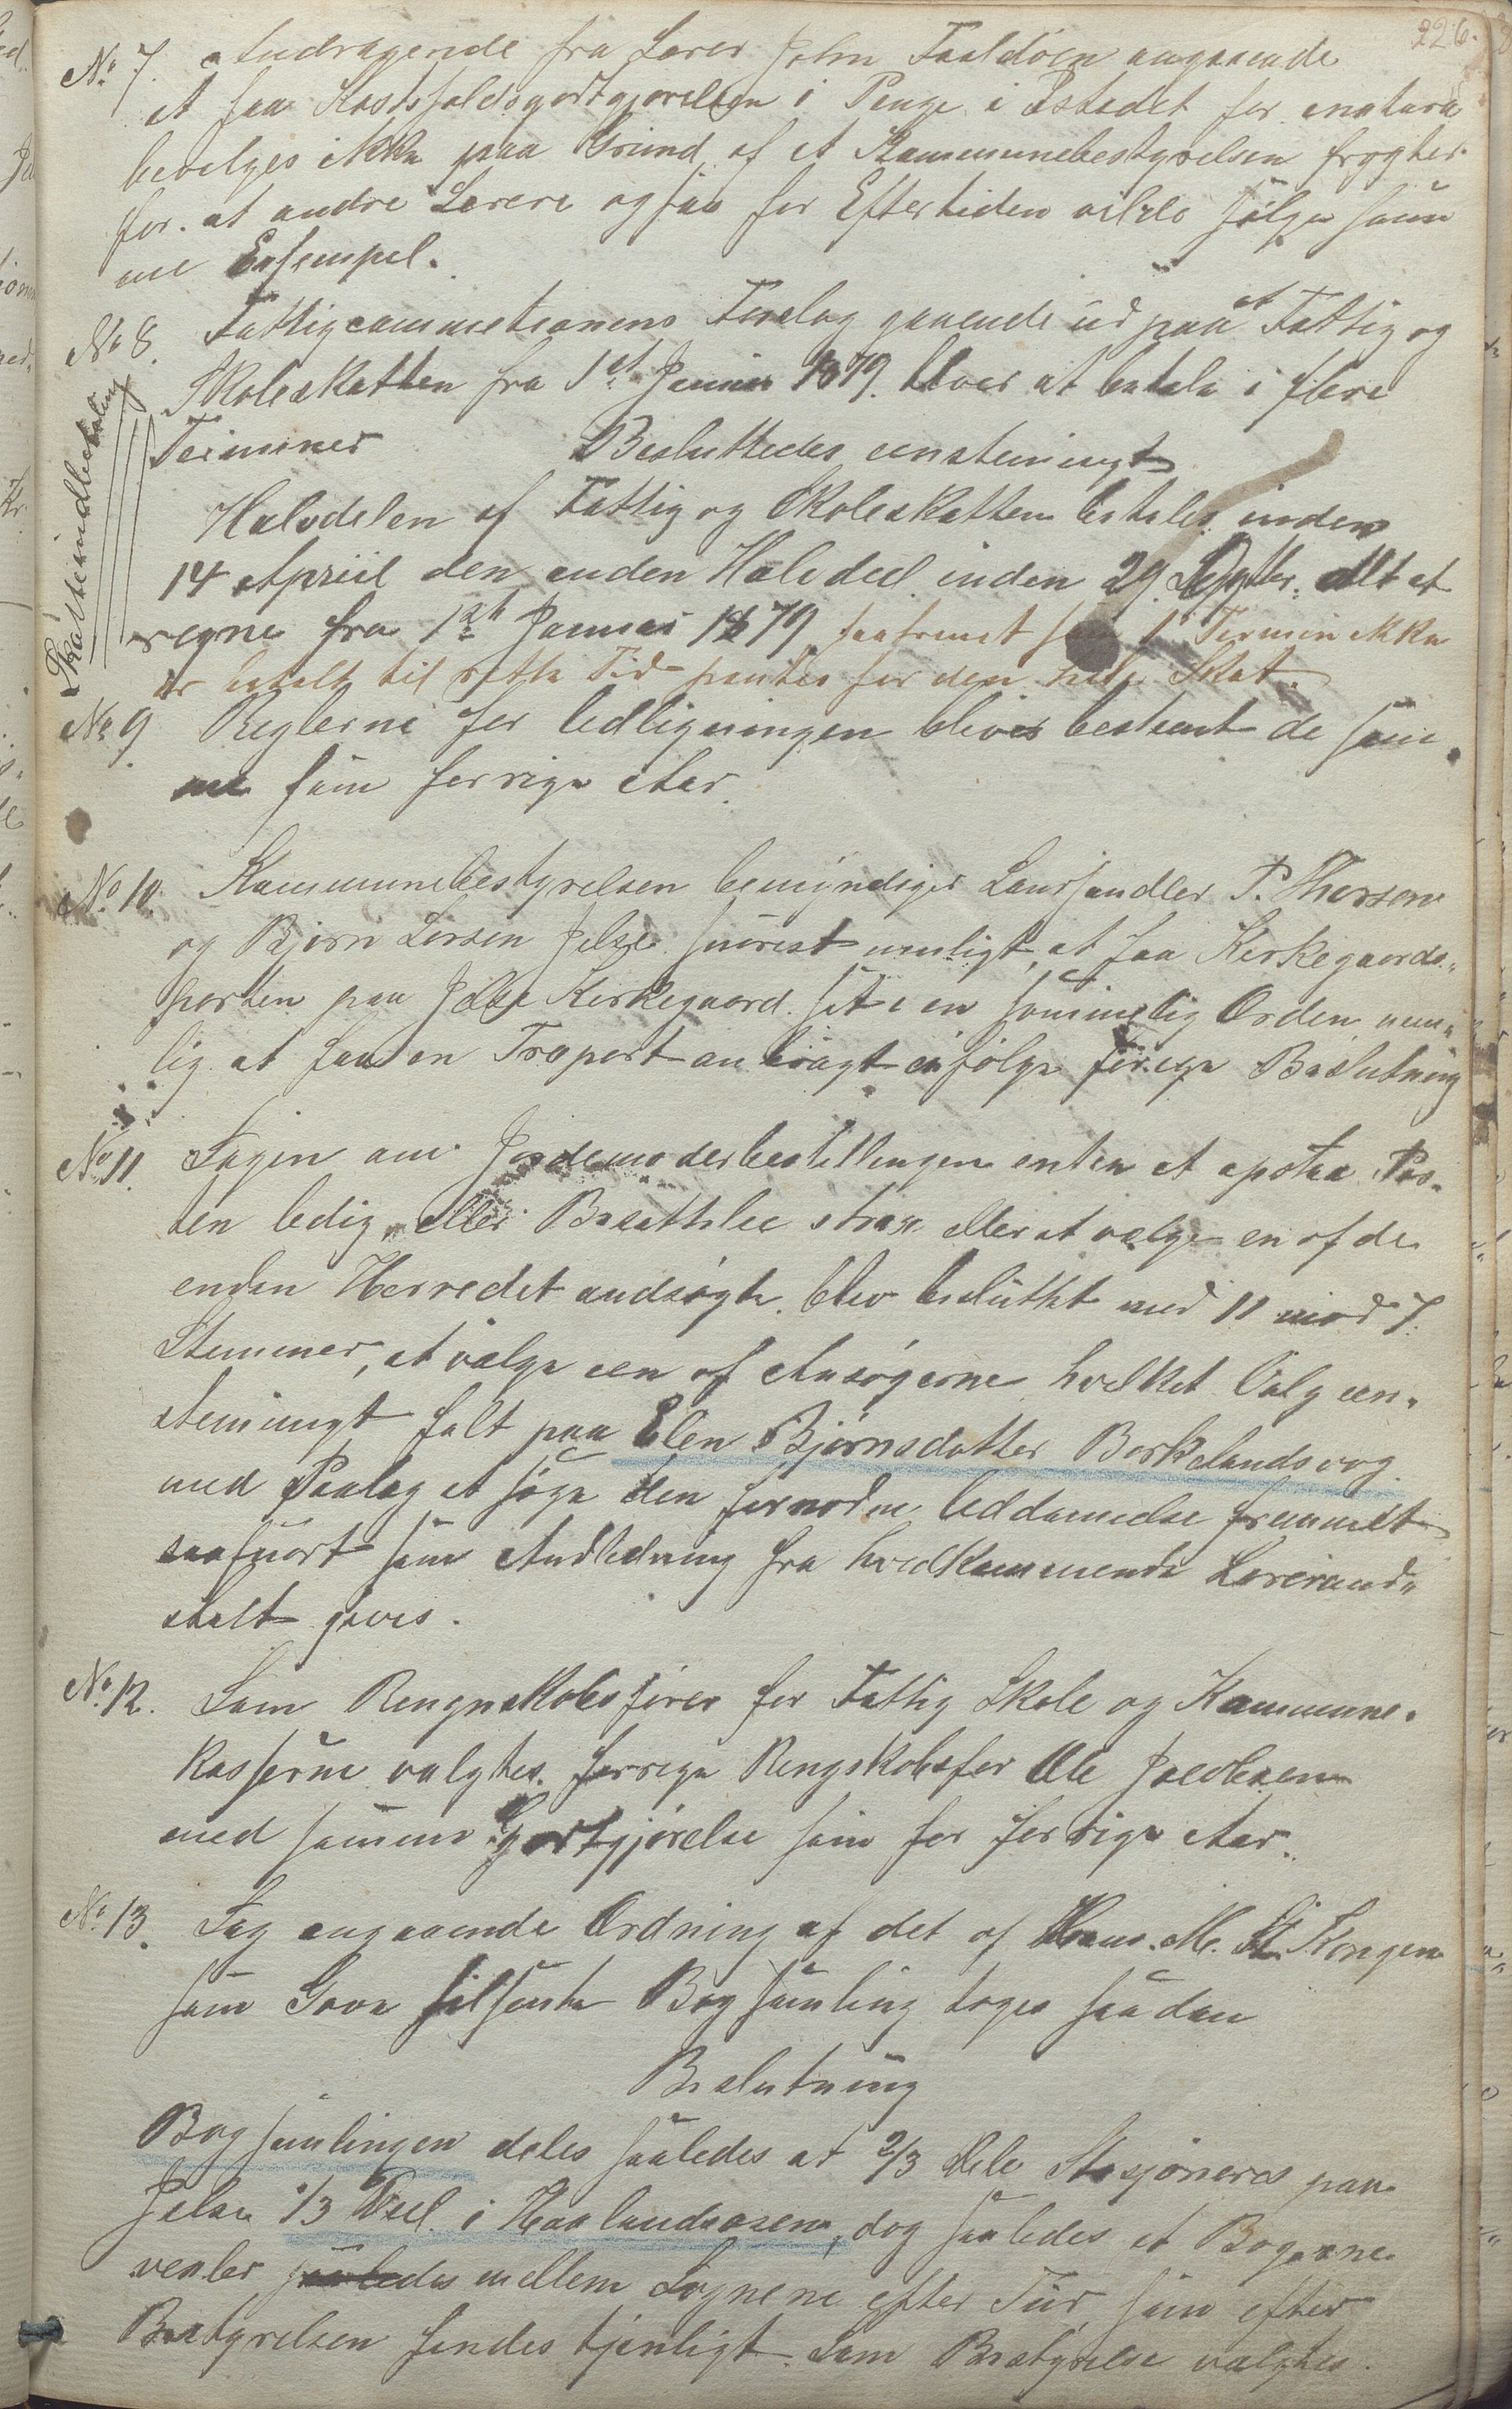 226.
No 7. Andragende fra Lærer John Faaldöen angaaende
at faa Kostholdsgodtgjørelsen i Penge i Istedet for natura
bevelges ikke paa Grund af at Kommunebestyrelsen frygter
for at andre Lærere ogsaa for Eftertiden vilde følge sam
me Exsempel.
No 8. Fattigcommetionens Forslag gaaende ud paa at Fattig og
Skoleskatten fra 1st Januar 1879. bliver at betale i flere
Terminer Besluttedes eenstemmigt
Skatteindbetaling
Halvdelen af Fattig og Skoleskatten betales inden
14 April den anden Halvdeel inden 29 Septbr. Alt at
regne fra 1st Januar 1879 saafremt 1st Termin ikke
er betalt til rette Tid pantes for den hele Skat.
No 9 Reglerne for Udligningen bliver bestemt de sam
me som forrige Aar.
No 10. Kommunebestyrelsen bemyndiger Lanhandler P. Thorsen
og Bjørn Larsen Jelse snarest muligt at faa Kirkegaards„
porten paa Jelse Kirkegaard sat i en sømmelig Orden nem„
lig at faa en Træport anbragt ifølge forrige Beslutning
No 11. Sagen om Jordemoderbestillingen enten at opsige Pos„
ten ledig, eller Besættelse strax eller at vælge en af de
enden Herredet andsøgte, blev besluttet med 11 mod 7
Stemmer, at vælge een af Ansøgerne hvelket Valg een„
stemmigt falt paa Elen Bjørnsdatter Børkelandsvog
med Paalæg at søge den fornødne Uddannelse fremmet
saasnart som Anledning fra hvedkommende Læreand„
stalt gives.
No 12. Som Rengnskabsfører for Fattig Skole og Kommune„
kasserne valgtes forrige Rengskabsfør Ole Jacobsen
med samme Godtgjørelse som for forrige Aar.
No 13. Sag angaaende Ordning af det af Hans. M. Kongen
som Gave tilsente Bogsamling toges saadan
Beslutning
Bogsamlingen deles saaledes at 2/3 Dele Stasjoneres paa
Jelse 1/3 Deel i Haalandsosen, dog saaledes at Bøgerne
vexler saaledes mellem Sognene efter Tur, som efter
Bestyrelsen fendes tjenligt. Som Bestyrelse valgtes